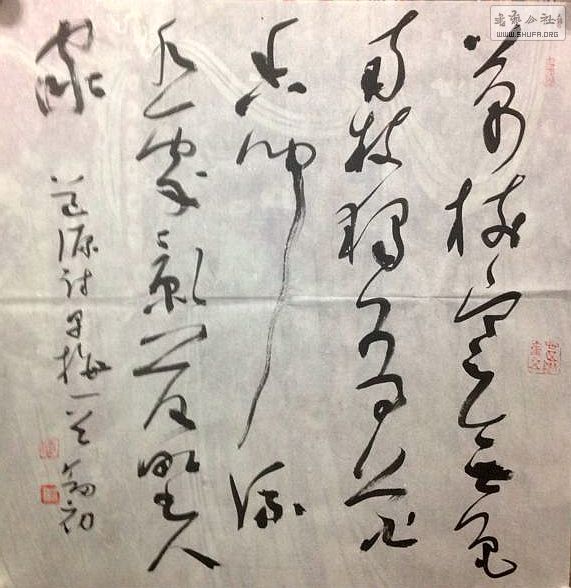 書藝公社
WWW.SHUFA.ORG
萬樹寒無色
南枝獨有花
香聞流
水處影落野人
家
道源詩早梅一首